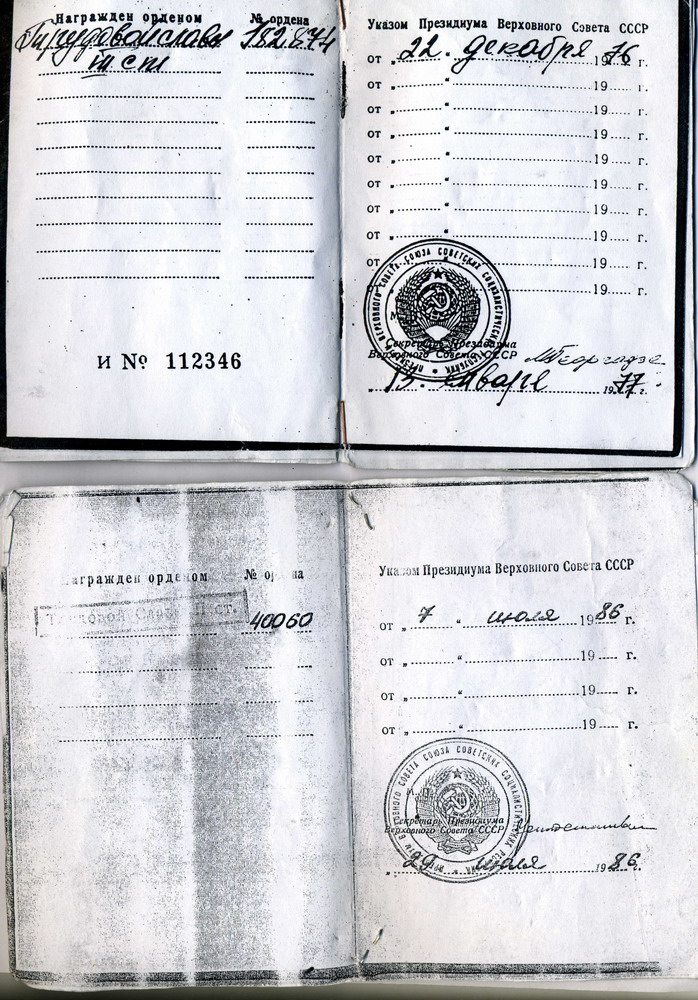 Награжден орденом
№ ордена
Трудовой славы
182874
III ст
и № 112346
Указом Президиума Верховного Совета СССР
от „ 22. декабря 1976 г.
от „ “ 19 г.
от „ “ 19 г.
от „ “ 19 г.
от „ “ 19 г.
от „ “ 19 г.
от „ “ 19 г.
от „ “ 19 г.
от „ “ 19 г.
от „ “ 19 г.
ВЕРХОВНОГО СОВЕТА СОЮЗА СОВЕТСКИХ СОЦИАЛИСТИЧЕСКИХ
Секретарь Президиума
Верховного Совета СССР
„ 13. января 1977 г.
Награжден орденом
№ ордена
Трудовой Славы II ст.
40060
Указом Президиума Верховного Совета СССР
от „ 7 “ июля 1986 г.
от „ “ 19 г.
от „ “ 19 г.
от „ “ 19 г.
ВЕРХОВНОГО СОВЕТА СОЮЗА СОВЕТСКИХ СОЦИАЛИСТИЧЕСКИХ
М. П.
Секретарь Президиума
Верховного Совета СССР
„ 29 июля 1986.